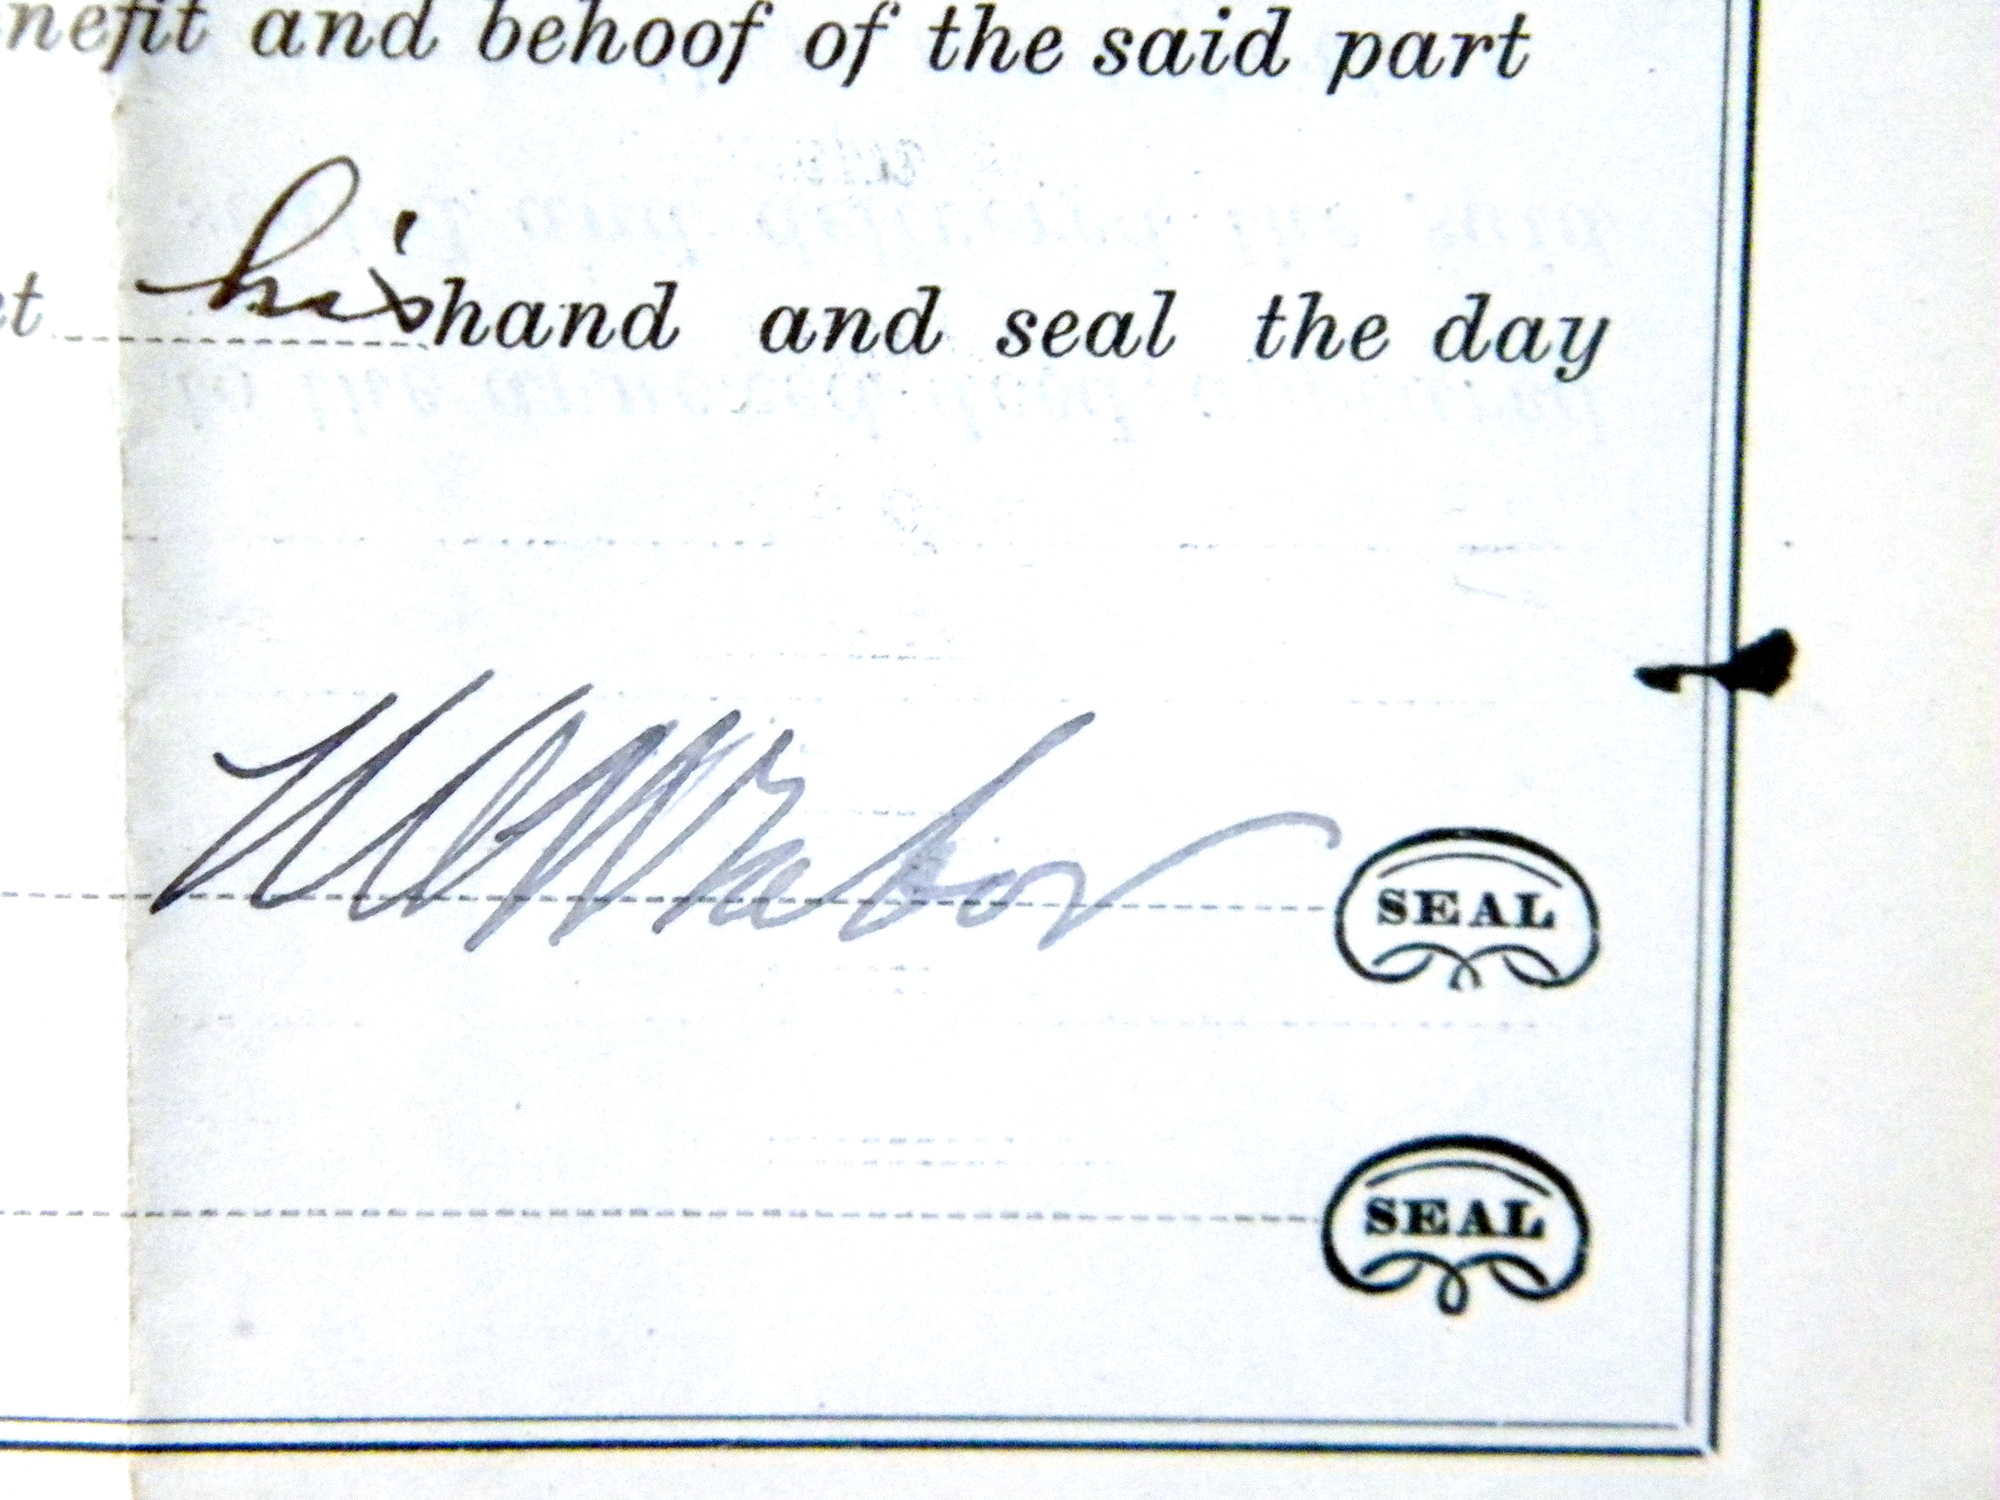 nefit and behoof of the said part
et his hand and seal the day
SEAL
SEAL